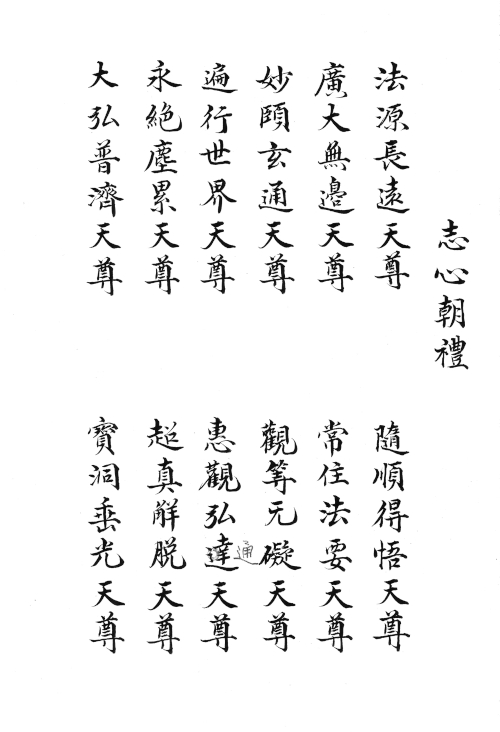 志心朝禮
法源長遠天尊
隨順得悟天尊
廣大無邊天尊
常住法要天尊
妙頤玄通天尊
觀等无礙天尊
遍行世界天尊
惠觀弘達天尊
通
永絕塵累天尊
超真解脫天尊
大弘普濟天尊
寶洞垂光天尊